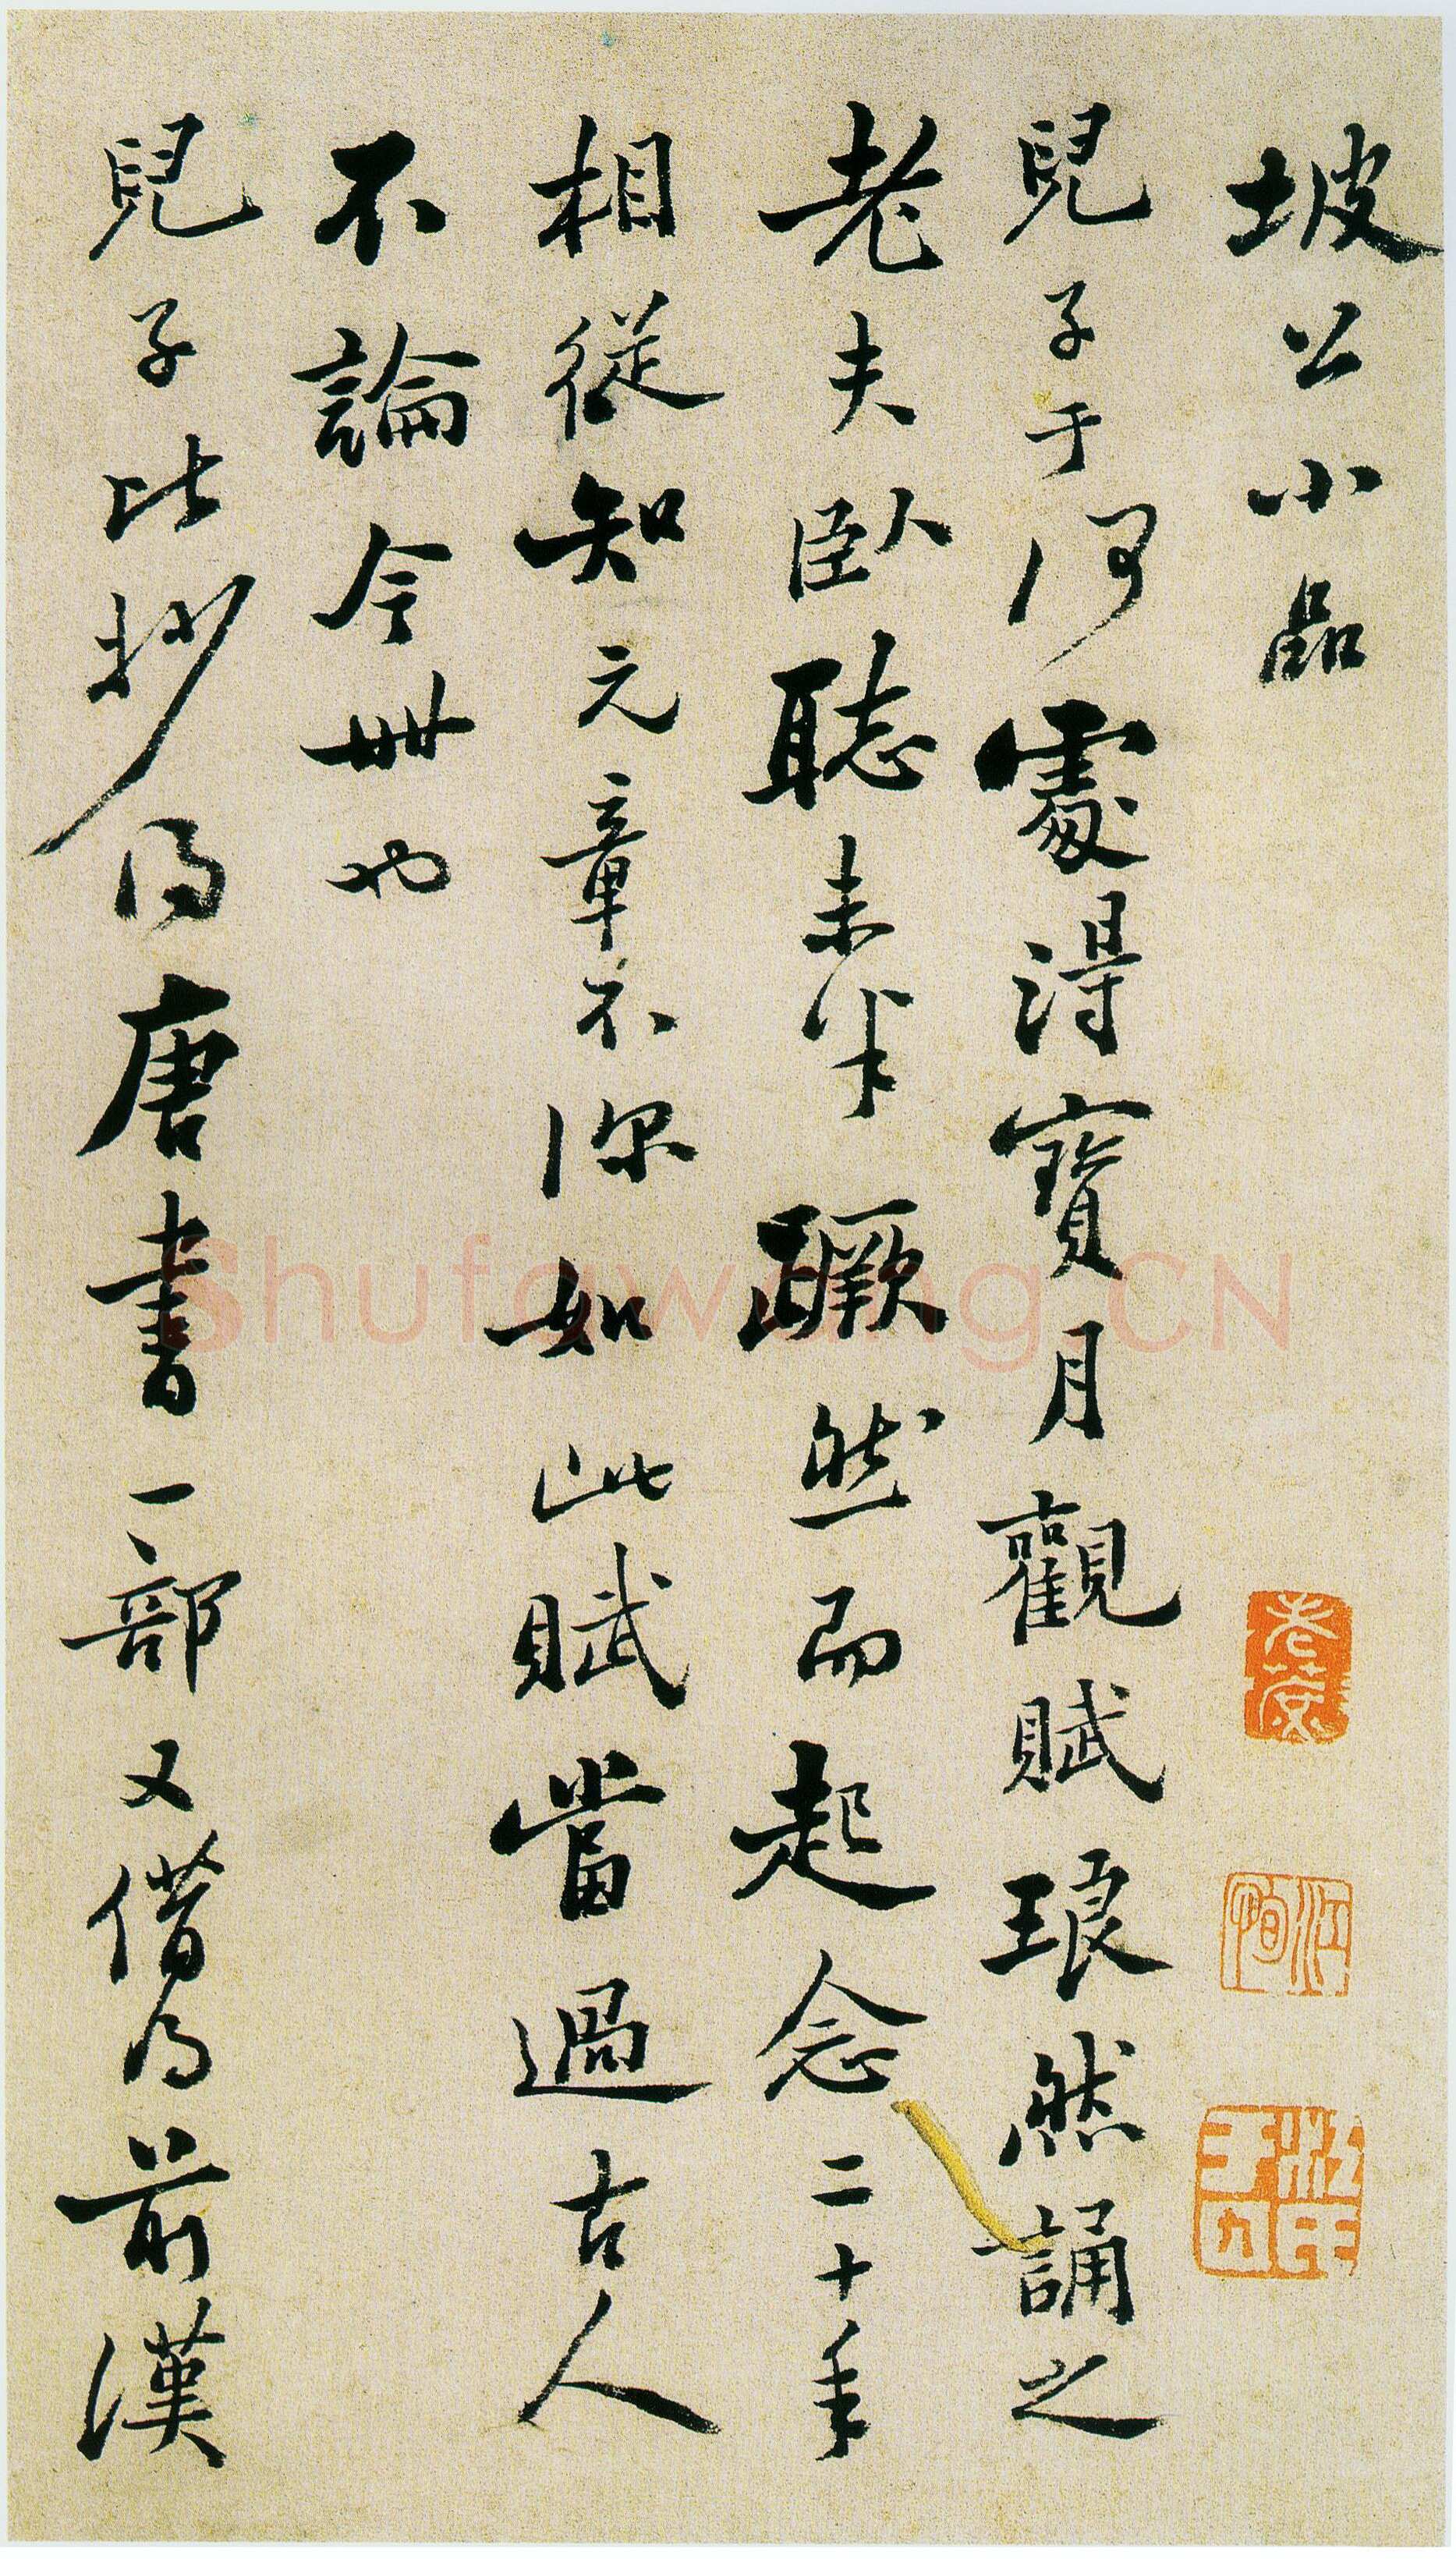 坡公小品
兒子于何處得寶月觀賦琅然誦之
老夫臥聽未半蹶然而起念二十年
相從知元章不深如此賦當過古人
不論今世也
兒子比抄得唐書一部又借得前漢
Shufawang.CN